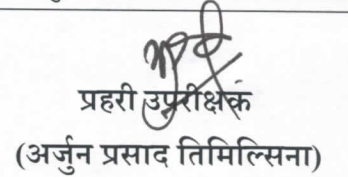 प्रहरी उपरीक्षक
(अर्जुन प्रसाद तिमिल्सिना)